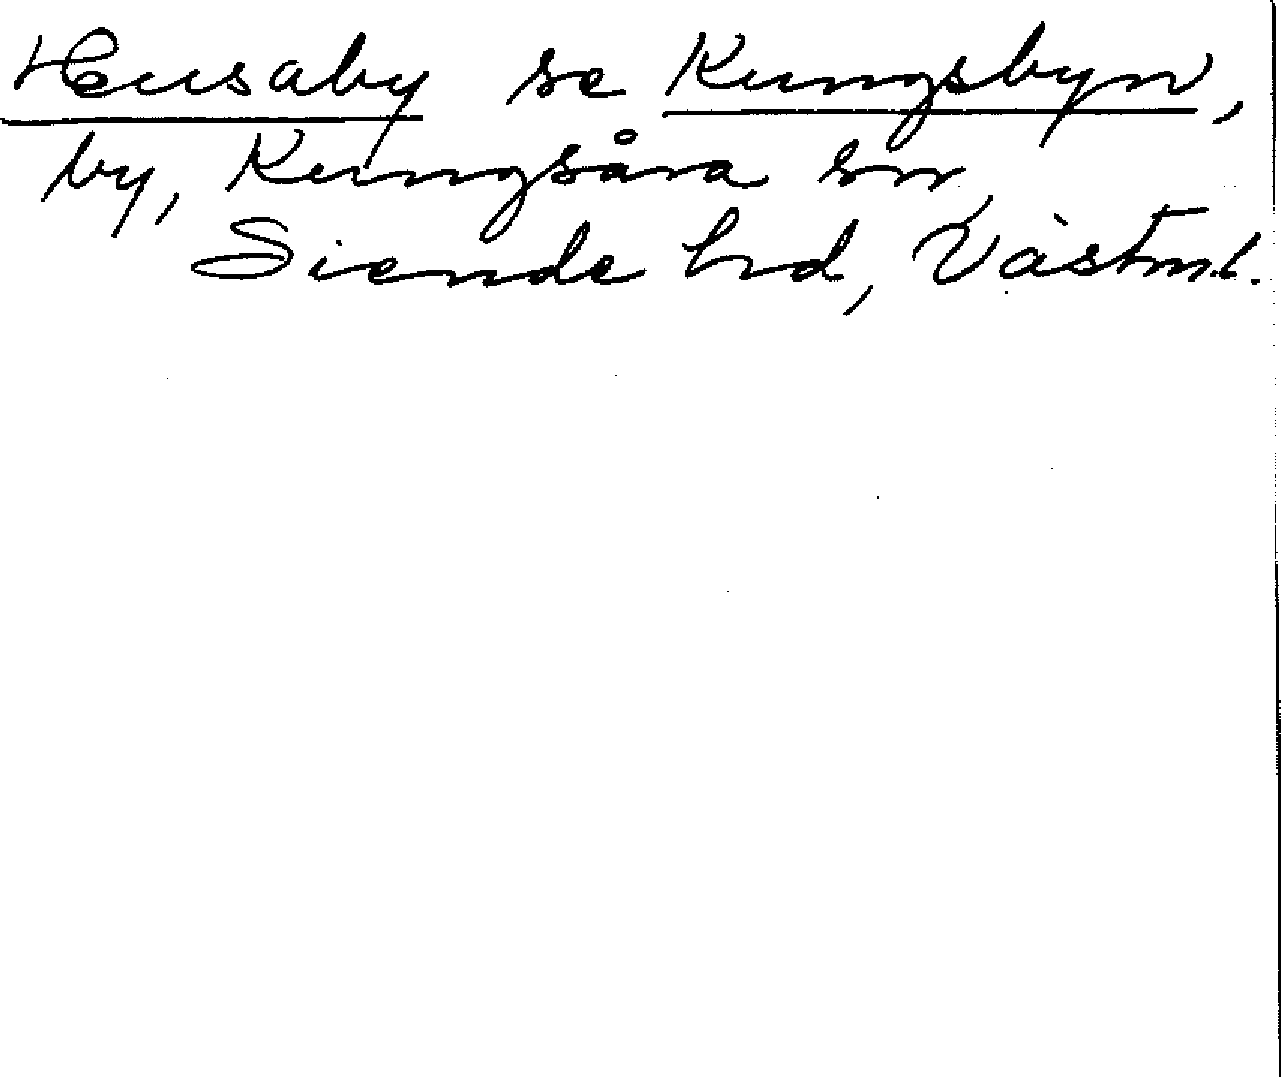 Husaby se Kungsbyn,
by, Kungsåra sn,
Siende hd, Västml.